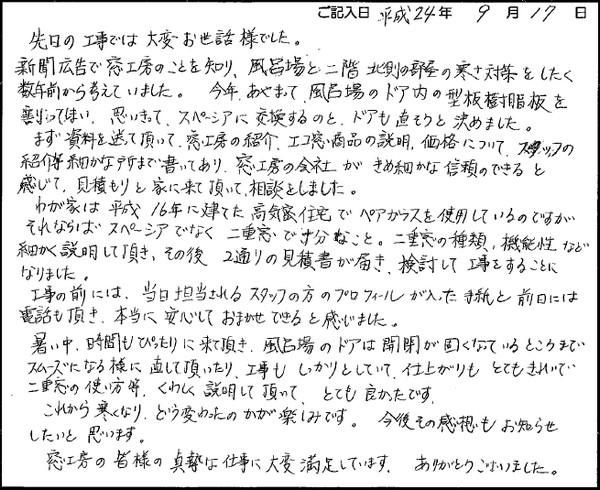 ご記入日 平成24年 9月17日
先日の工事では大変お世話様でした。
新聞広告で窓工房のことを知り、風呂場と二階北側の部屋の寒さ対策をしたく
数年前から考えていました。今年、あやまって、風呂場のドア内の型板樹脂板を
割ってしまい、思いきって、スペーシアに交換するのと、ドアも直そうと決めました。
まず資料を送って頂いて、窓工房の紹介、エコ窓商品の説明、価格について、スタッフの
紹介等細かな所まで書いてあり、窓工房の会社がきめ細かな信頼のできると
感じて、見積もりと家に来て頂いて、相談をしました。
わが家は平成16年に建てた高気密住宅でペアガラスを使用しているのですが
それならばスペーシアでなく二重窓で十分なこと。二重窓の種類、機能性など
細かく説明して頂き、その後2通りの見積書が届き、検討して工事をすることに
なりました。
工事の前には、当日担当されるスタッフの方のプロフィールが入った手紙と前日には
電話も頂き、本当に安心しておまかせできると感じました。
暑い中、時間もぴったりに来て頂き、風呂場のドアは開閉が固くなっているところまで
スムーズになる様に直して頂いたり、工事もしっかりとしていて、仕上がりもとてもきれいで
二重窓の使い方等、くわしく説明して頂いて、とても良かったです。
これから寒くなり、どう変わったのかが楽しみです。今後その感想もお知らせ
したいと思います。
窓工房の皆様の真摯な仕事に大変満足しています。ありがとうございました。